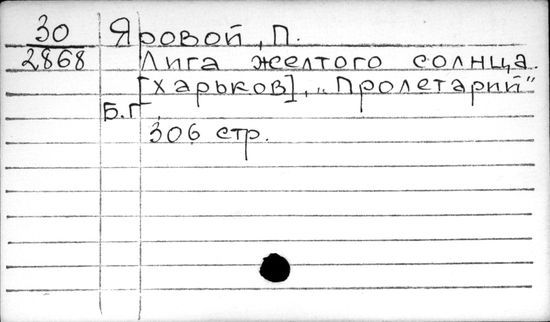 30 Яровой, П.
2868 Лига желтого солнца.
[Харьков], „Пролетарий"
Б.Г.
306 стр.